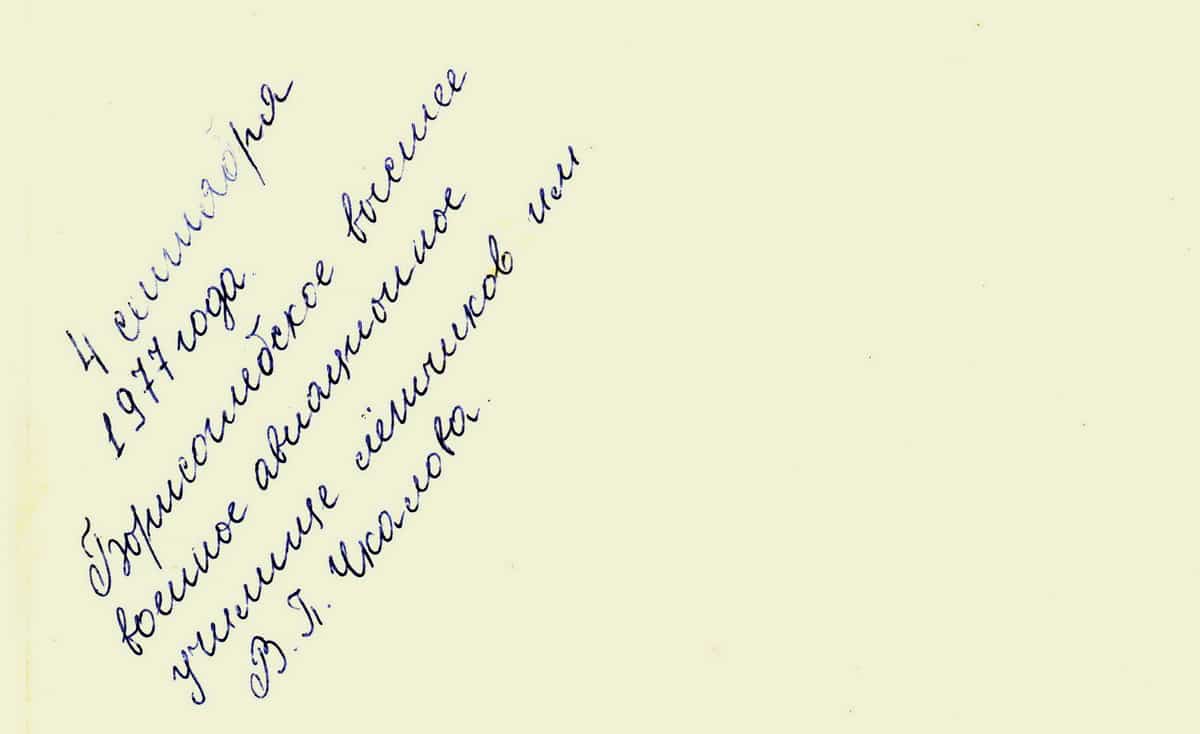 4 сентября
1977 года.
Борисоглебское высшее
военное авиационное
училище лётчиков им.
В. П. Чкалова.